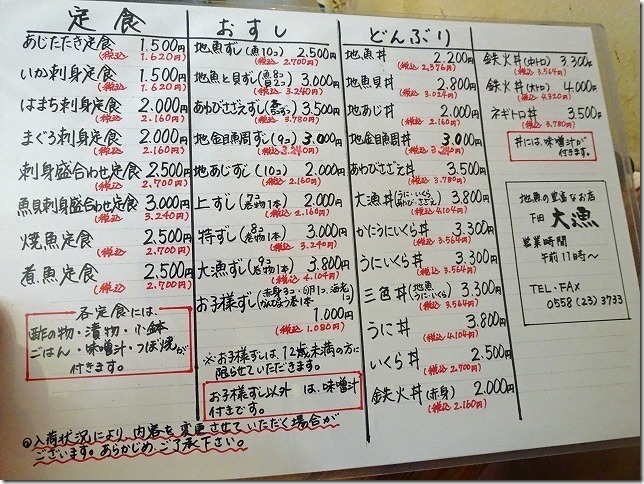 定食
あじたたき定食 1.500円
(税込 1.620円)
いか刺身定食 1.500円
(税込 1.620円)
はまち刺身定食 2.000円
(税込 2.160円)
まぐろ刺身定食 2.000円
(税込 2.160円)
刺身盛合わせ定食 2,500円
(税込 2.700円)
魚貝刺身盛合わせ定食 3,000円
(税込 3.240円)
焼魚定食 2,500円
(税込 2.700円)
煮魚定食 2,500円
(税込 2.700円)
各定食には、
酢の物・漬物・小鉢
ごはん・味噌汁・つぼ焼が
付きます。
おすし
地魚ずし(魚10コ) 2,500円
(税込 2.700円)
地魚と貝ずし(魚8コ 貝2コ) 3,000円
(税込 3.240円)
あわびさざえずし 3,500円
(税込 3.780円)
地金目鯛ずし(9コ) 3.000円
(税込 3.240円)
地あじずし(10コ) 2.000円
(税込 2.160円)
上ずし(7コ 巻物1本) 2,000円
(税込 2.160円)
特ずし(8コ 巻物1本) 3,000円
(税込 3.240円)
大漁ずし(9コ 巻物1本) 3.800円
(税込 4.104円)
お子様ずし(赤身3コ・卵1コ・海老1コ かんぴょう巻1本)
1.000円
(税込 1.080円)
※お子様ずしは、12歳未満の方に
限らせていただきます。
お子様ずし以外は、味噌汁
付きです。
どんぶり
地魚丼 2,200円
(税込 2,376円)
地魚貝丼 2,800円
(税込 3.024円)
地あじ丼 2.000円
(税込 2.160円)
地金目鯛丼 3,000円
(税込 3.240円)
あわびさざえ丼 3.500円
(税込 3.780円)
大漁丼(うに・いくら あわび・さざえ) 3,800円
(税込 4.104円)
かにうにいくら丼 3.300円
(税込 3.564円)
うにいくら丼 3.300円
(税込 3.564円)
三色丼(地魚 うに・いくら) 3,300円
(税込 3.564円)
うに丼 3.800円
(税込 4.104円)
いくら丼 2.500円
(税込 2.700円)
鉄火丼(赤身) 2,000円
(税込 2.160円)
鉄火丼(中トロ) 3,300円
(税込 3.564円)
鉄火丼(大トロ) 4,000円
(税込 4.320円)
ネギトロ丼 3,500円
(税込 3,780円)
丼には、味噌汁が
付きます。
地魚の豊富なお店
下田 大漁
営業時間
午前11時〜
TEL・FAX
0558(23)3733
◎入荷状況により、内容を変更させていただく場合が
ございます。あらかじめ、ご了承下さい。